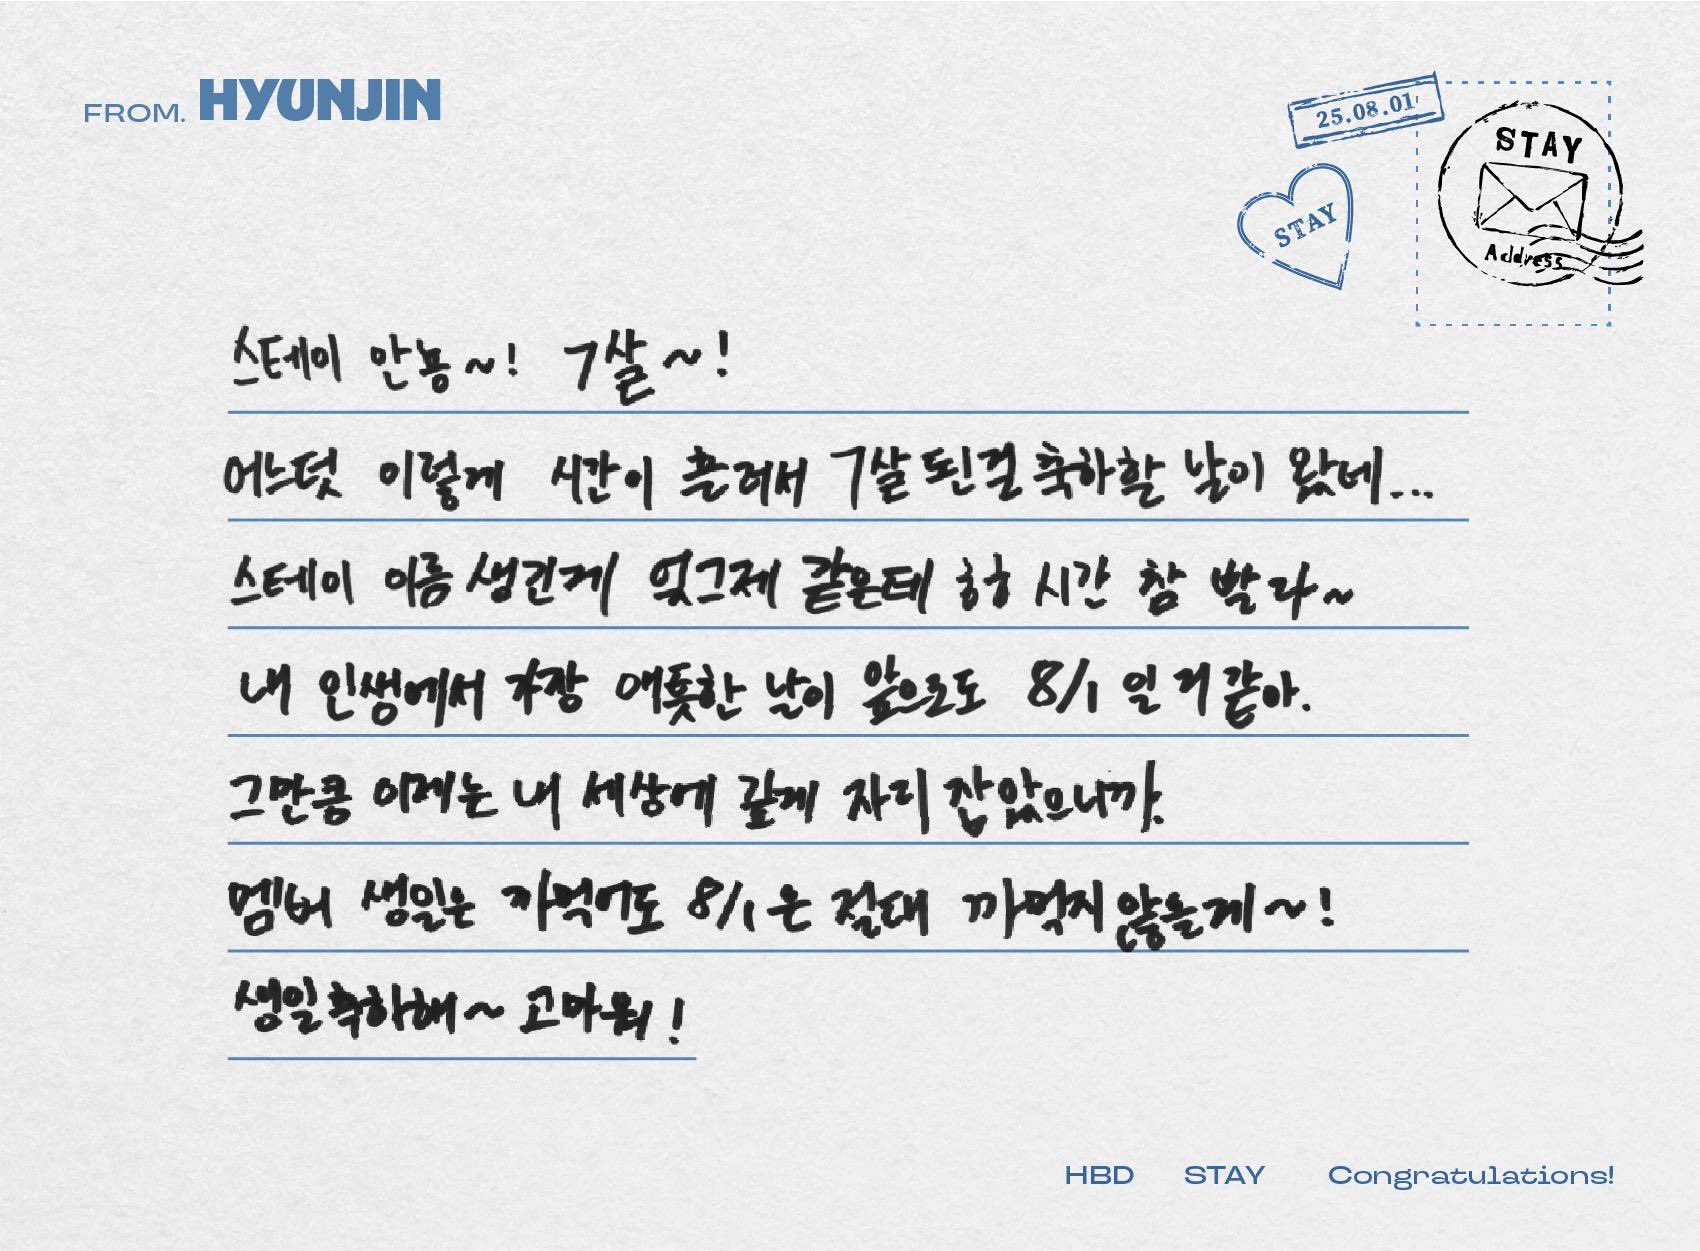 FROM. HYUNJIN
25.08.01
STAY
STAY
Address
스테이 안뇽~! 7살~!
어느덧 이렇게 시간이 흘러서 7살 된걸 축하할 날이 왔네...
스테이 이름 생긴게 엊그제 같은데 ㅎㅎ 시간 참 빨라~
내 인생에서 가장 애틋한 날이 앞으로도 8/1 일 거 같아.
그만큼 이제는 내 세상에 깊게 자리 잡았으니까.
멤버 생일은 까먹어도 8/1은 절대 까먹지 않을게~!
생일 축하해~ 고마워!
HBD STAY Congratulations!